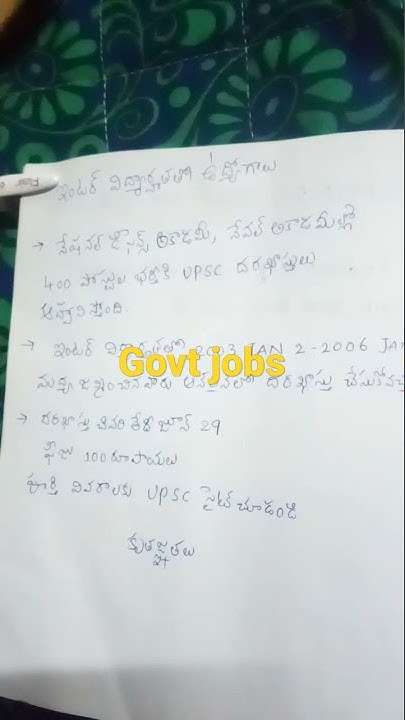 ఇంటర్ విద్యార్హతతో ఉద్యోగాలు
→ నేషనల్ డిఫెన్స్ అకాడమీ, నేవల్ అకాడమీల్లో
400 పోస్టుల భర్తీకి UPSC దరఖాస్తులు
ఆహ్వానిస్తోంది.
→ ఇంటర్ విద్యార్హతతో 2003 JAN 2-2006 JA
Govt jobs
మధ్య జన్మించినవారు ఆన్లైన్‌లో దరఖాస్తు చేసుకోవచ్చ
→ దరఖాస్తు చివరి తేదీ జూన్ 29
ఫీజు 100 రూపాయలు
పూర్తి వివరాలకు UPSC సైట్ చూడండి
కృతజ్ఞతలు